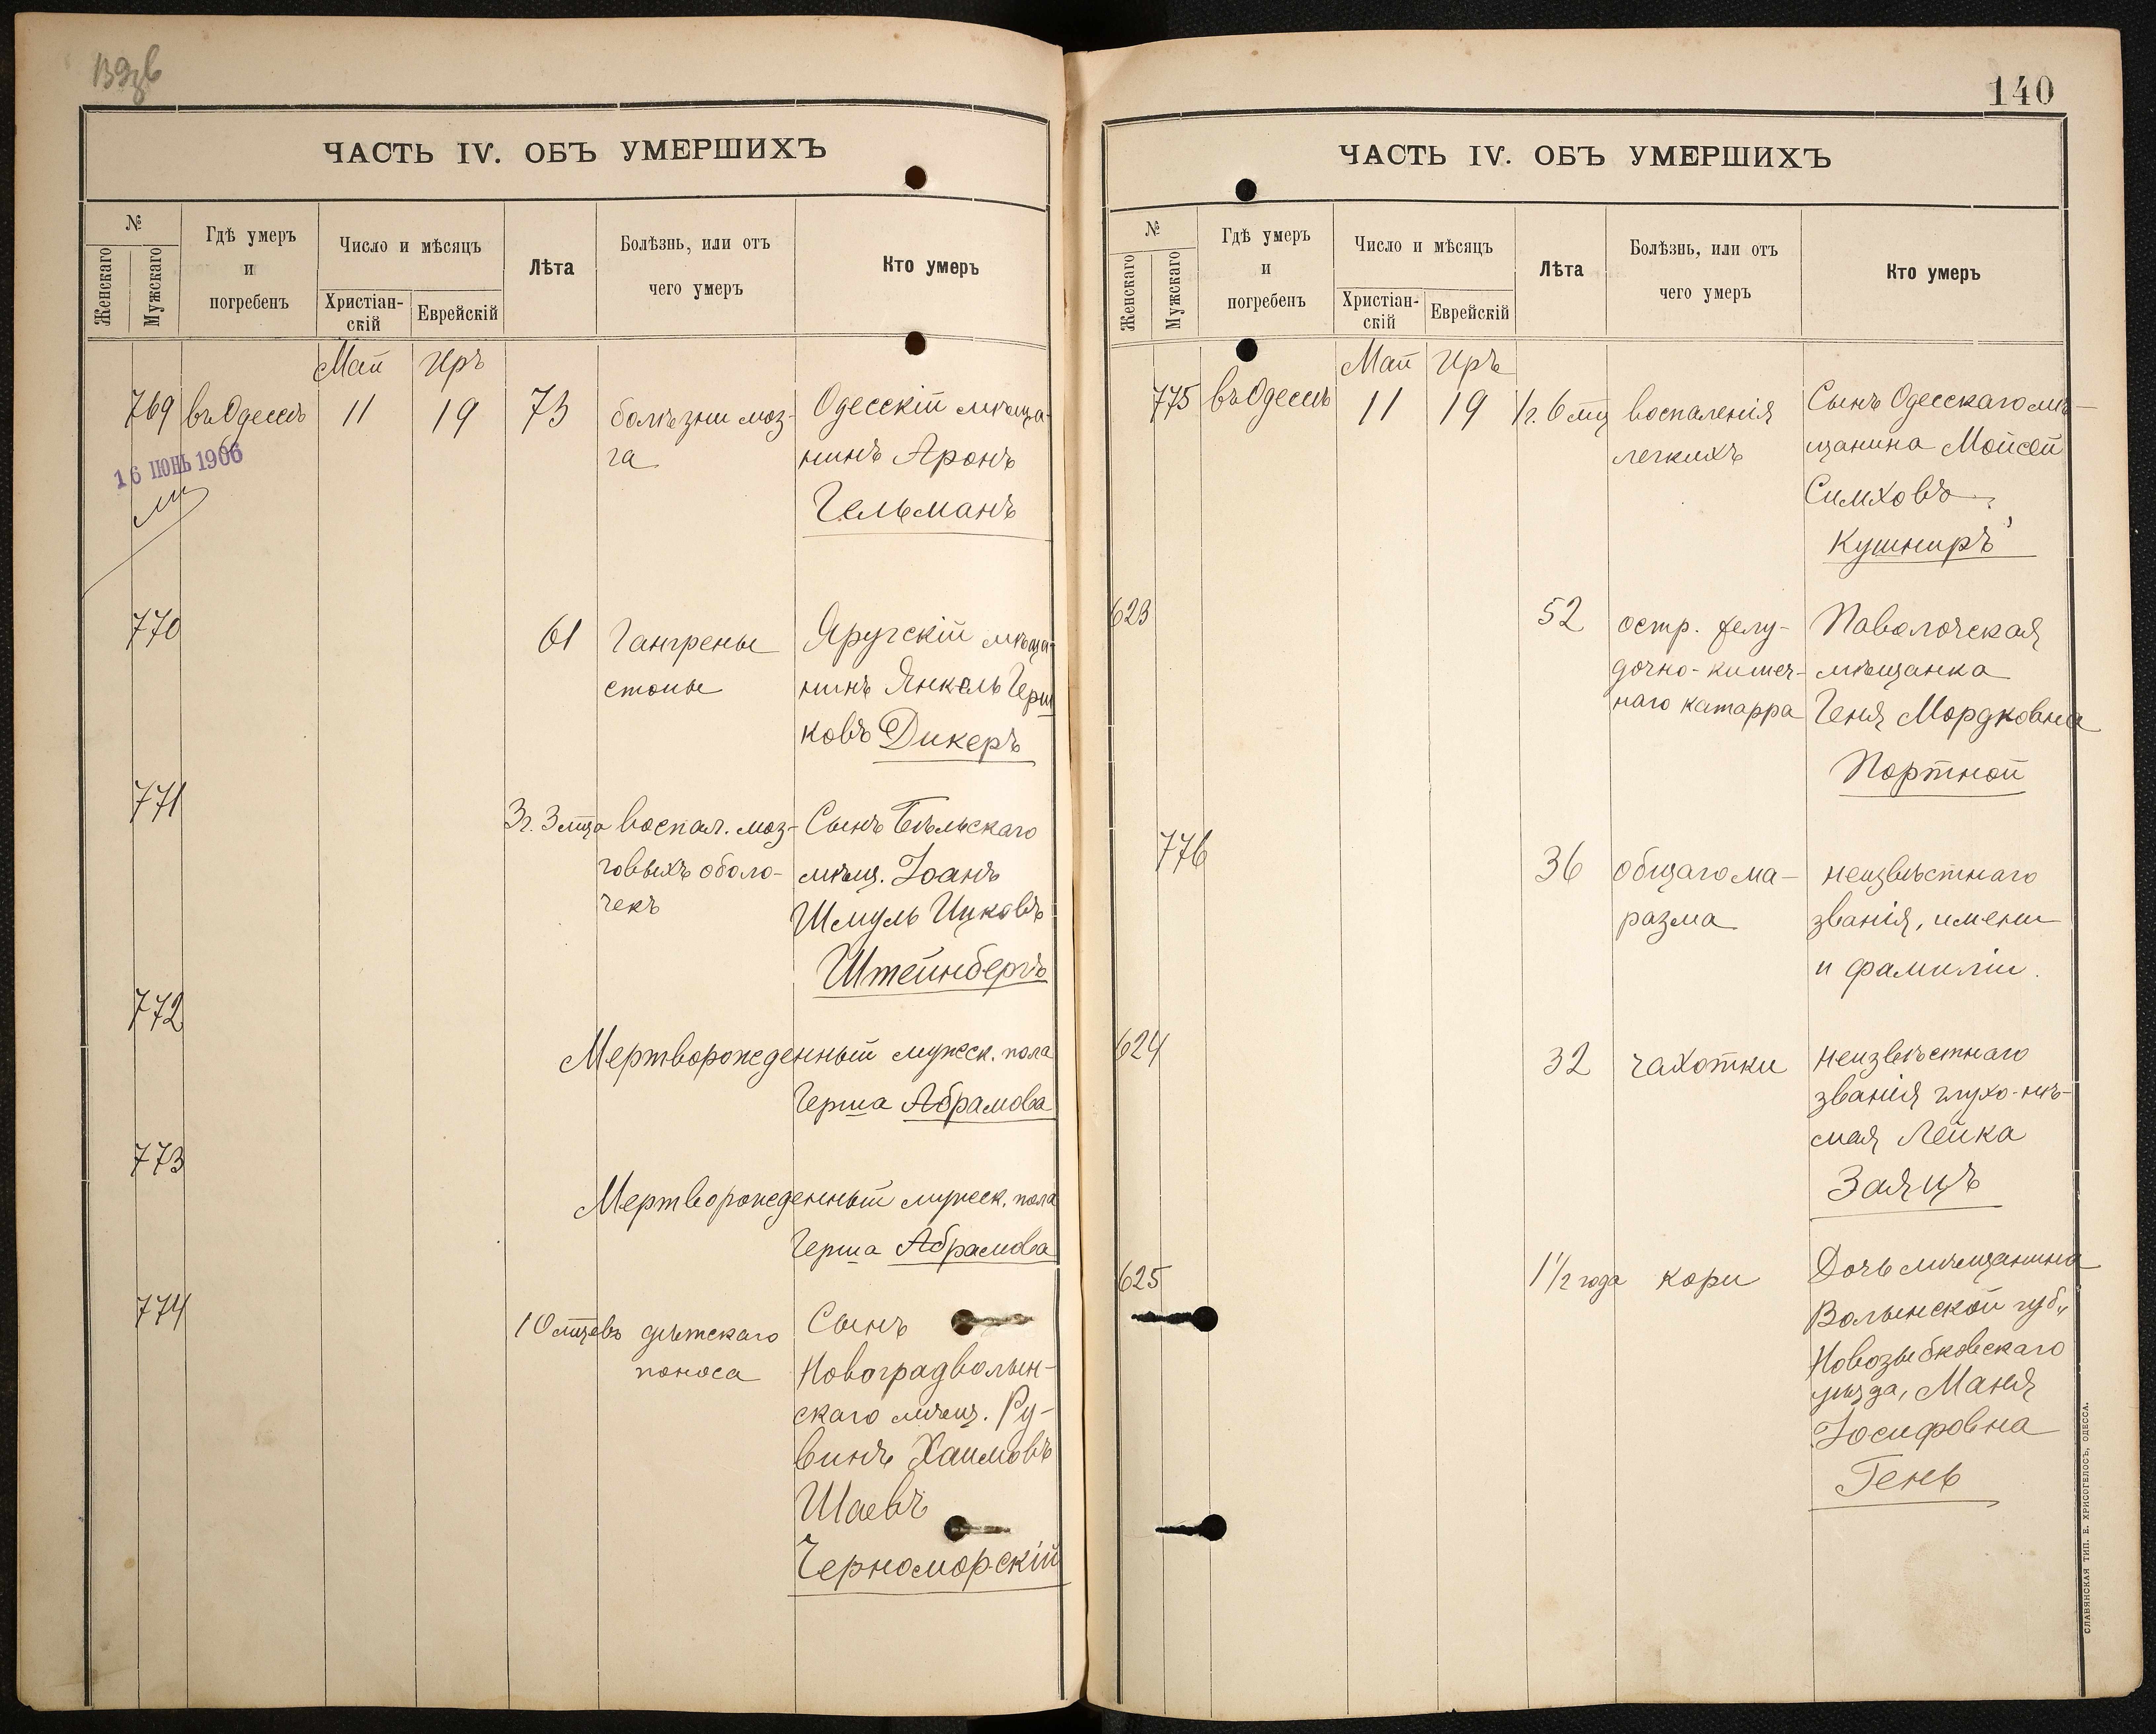 ЧАСТЬ IV. ОБЪ УМЕРШИХЪ
№
Женскаго
Мужскаго
Гдѣ умеръ
и
погребенъ
Число и мѣсяцъ
Христіан-
скій
Еврейскій
Лѣта
Болѣзнь, или отъ
чего умеръ
Кто умеръ
Май Иръ
769 въ Одессѣ 11 19 73 болѣзни моз- Одесскій мѣща-
га нинъ Аронъ
Гельманъ
16 ІЮНЬ 1906
770 61 Гангрены Яругскій мѣща-
стопы нинъ Янкель Герш
ковъ Дикеръ
771 3 г. 3 мца воспал. моз- Сынъ Бѣльскаго
говыхъ оболо- мѣщ. Іоанъ
чекъ Шмуль Ицковъ
Штейнбергъ
772 Мертворожденный мужеск. пола
Герша Абрамова
773 Мертворожденный мужеск. пола
Герша Абрамова
774 10 мцевъ дѣтскаго Сынъ
поноса Новоградволын-
скаго мѣщ. Ру-
винъ Хаимовъ
Шаевъ
Черноморскій
140
ЧАСТЬ IV. ОБЪ УМЕРШИХЪ
№
Женскаго
Мужскаго
Гдѣ умеръ
и
погребенъ
Число и мѣсяцъ
Христіан-
скій
Еврейскій
Лѣта
Болѣзнь, или отъ
чего умеръ
Кто умеръ
Май Иръ
775 въ Одессѣ 11 19 1 г. 6 мц воспаленія Сынъ Одесскаго мѣ-
легкихъ щанина Мойсей
Симховъ
Кушниръ
623 52 остр. желу- Паволочская
дочно-кишеч- мѣщанка
наго катарра Геня Мордковна
Портной
776 36 общаго ма- неизвѣстнаго
разма званія, имени
и фамиліи.
624 32 чахотки неизвѣстнаго
званія глухо-нѣ-
мая Лейка
Заяцъ
625 1 1/2 года кори Дочь мѣщанина
Волынской губ.,
Новозыбковскаго
уѣзда, Маня
Іосифовна
Гень
СЛАВЯНСКАЯ ТИП. Е. ХРИСОГЕЛОСЪ, ОДЕССА.